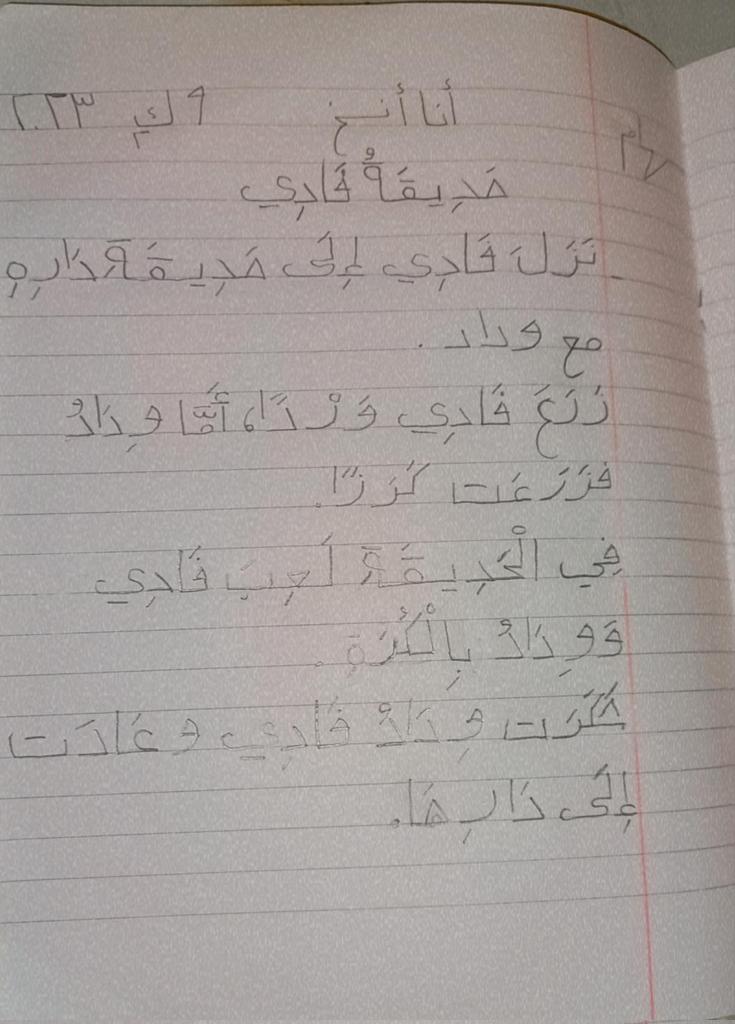 أنا أنسخ ٩ ك٢ ٢٠٢٣
حَدِيقَةُ فَادِي
نَزَلَ فَادِي إِلَى حَدِيقَةِ دَارِهِ
مع وداد .
زَرَعَ فَادِي وَرْدًا، أَمَّا وِدَادُ
فَزَرَعَت كَرَزًا.
فِي الْحَدِيقَةِ لَعِبَ فَادِي
وَوِدَادُ بِالْكُرَةِ .
شَكَرَت وِدَادُ فَادِي وَعَادَت
إِلَى دَارِهَا.